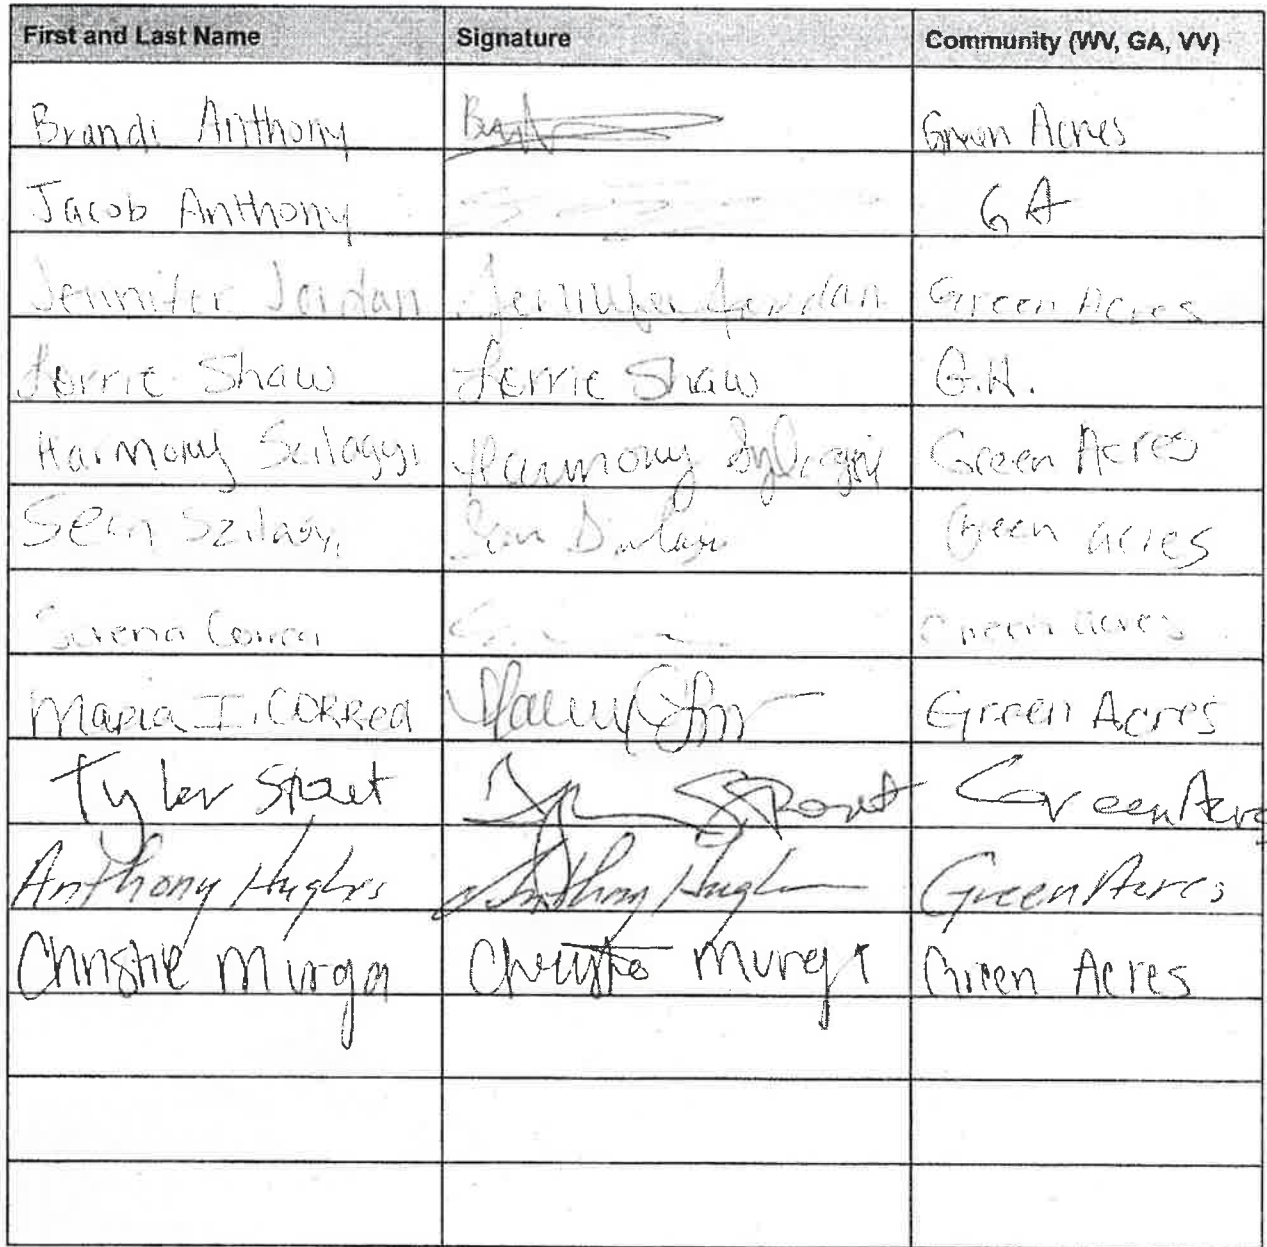 First and Last Name Signature Community (WV, GA, VV)
Brandi Anthony Green Acres
Jacob Anthony GA
Jennifer Jordan Jennifer Jordan Green Acres
Lorrie Shaw Lorrie Shaw G.A.
Harmony Szilagyi Harmony Szilagyi Green Acres
Sean Szilagyi Sean Green acres
Serena Correa Green acres
Maria I. CORREA Green Acres
Tyler Green Acres
Anthony Hughes Anthony Hughes Green Acres
Christie Murga Christie Murga Green Acres